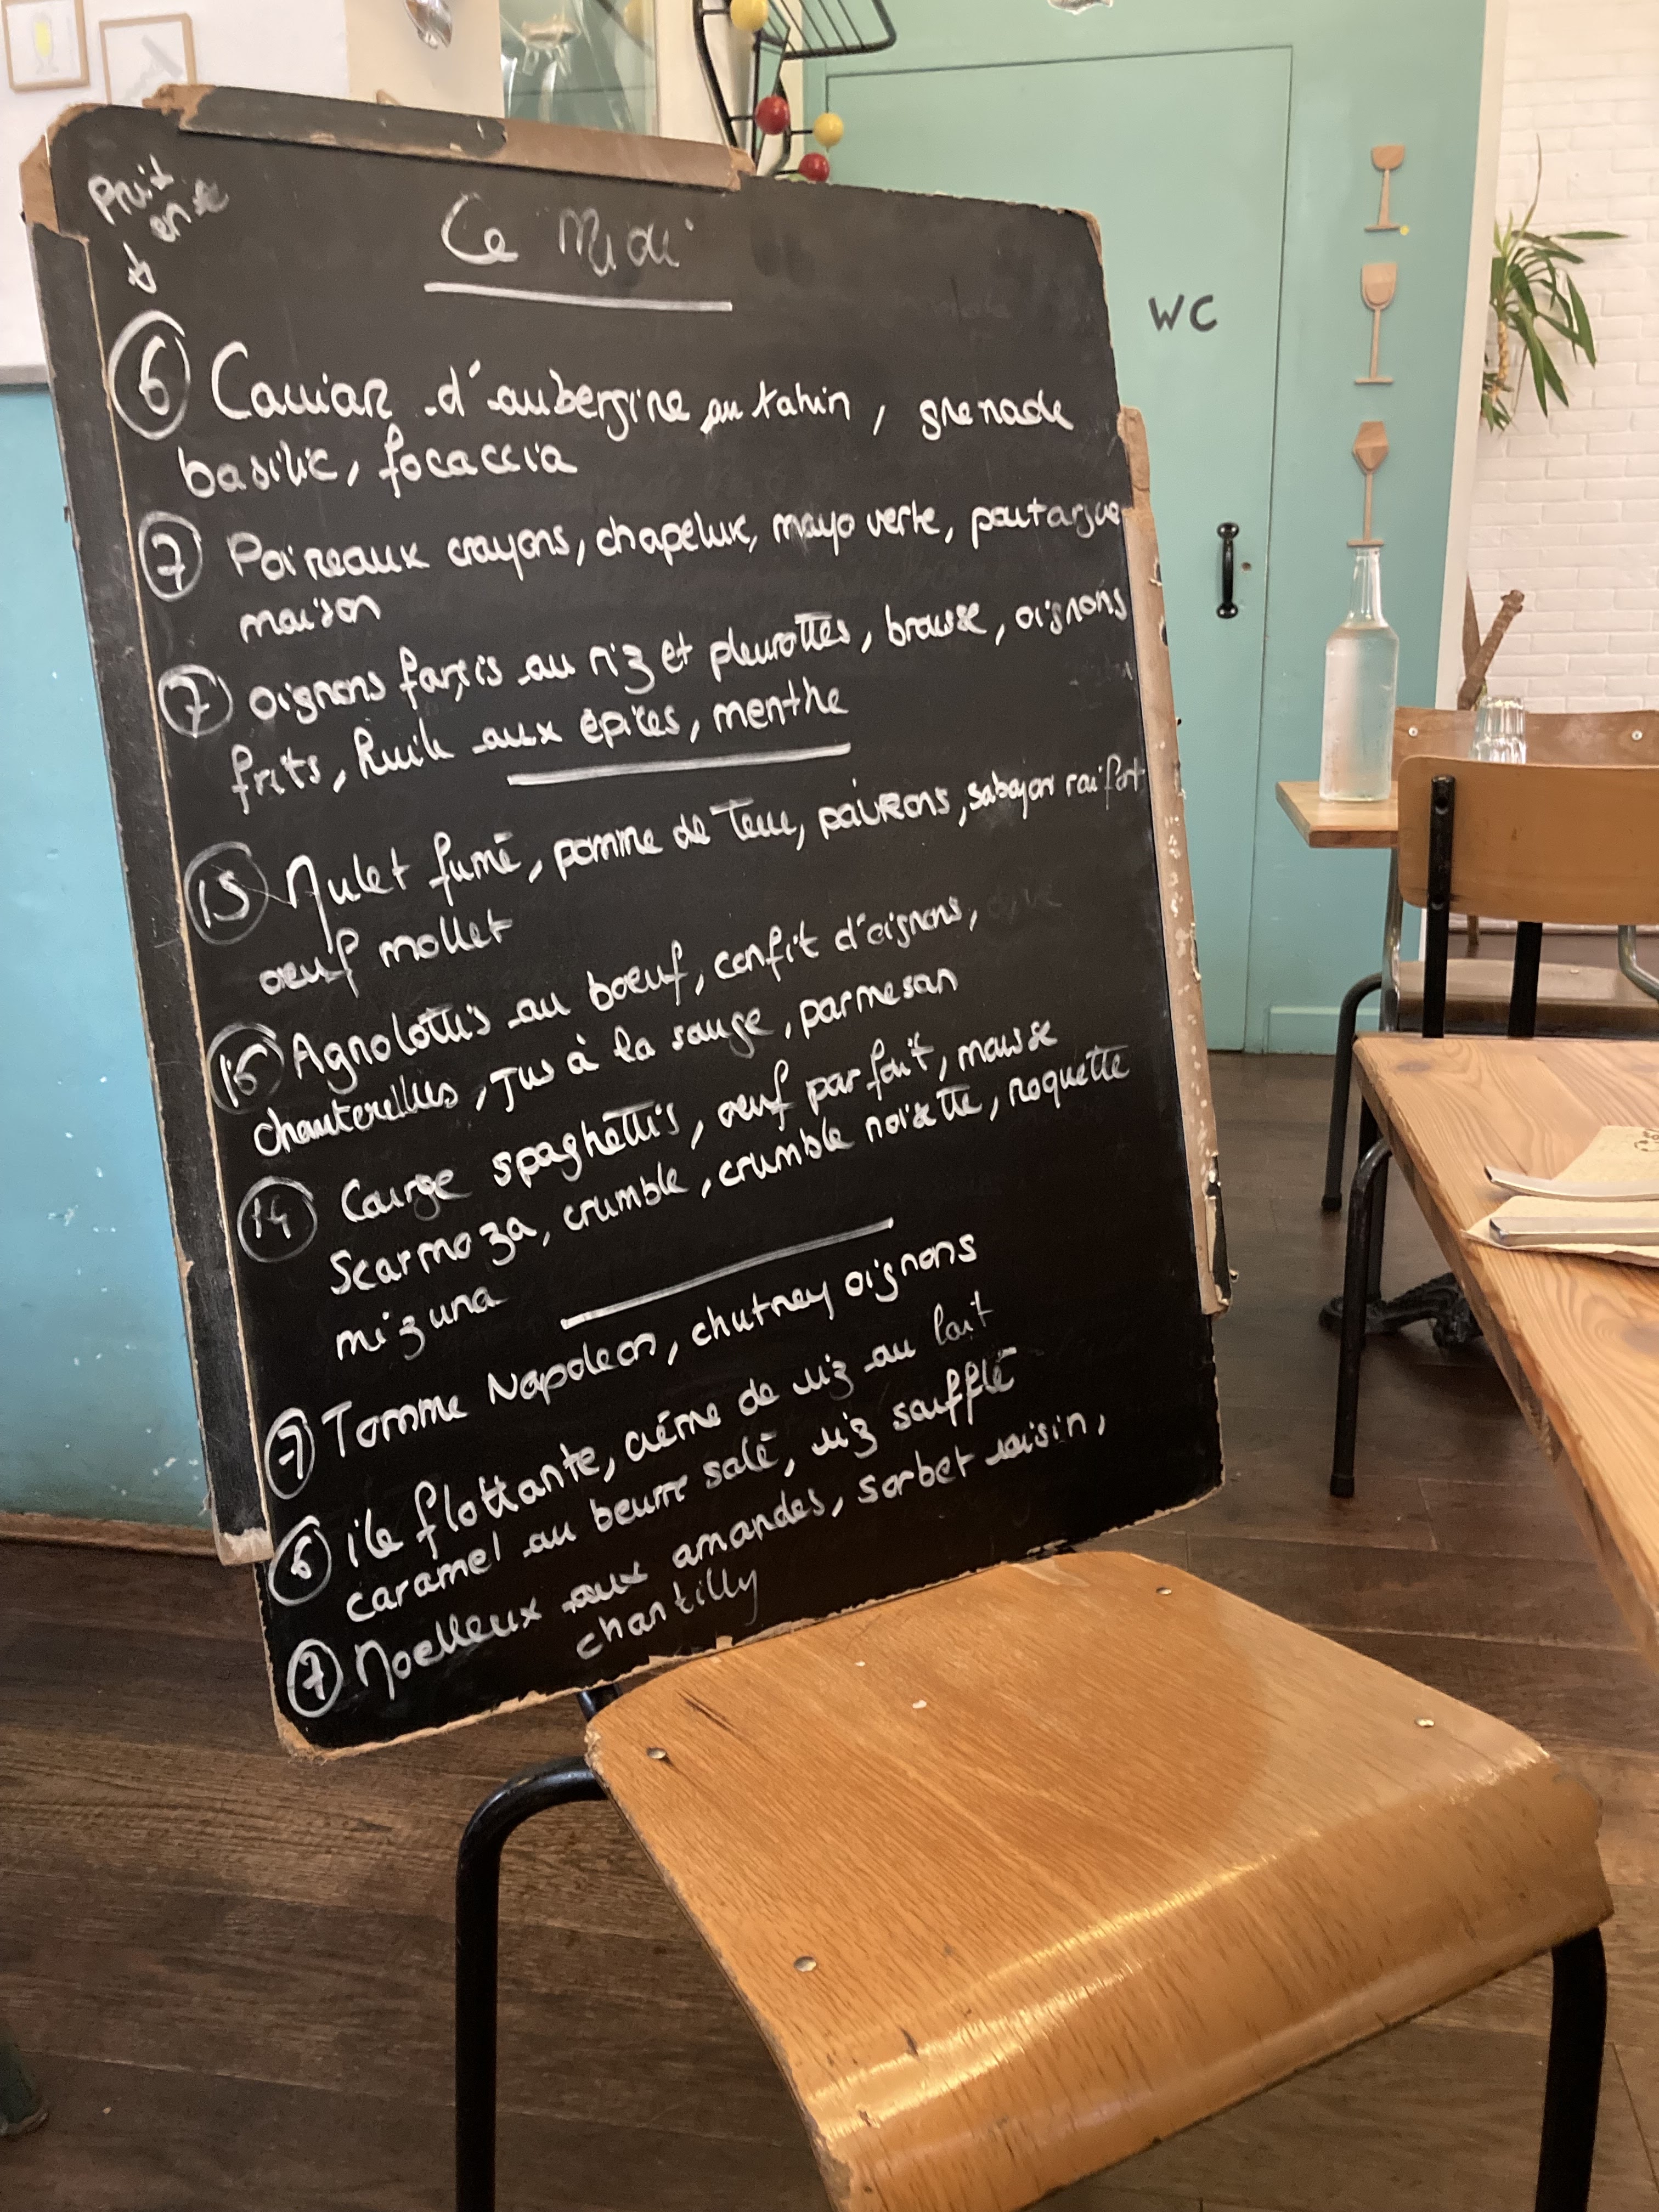 Prix
en €
Ce Midi
6 Caviar d'aubergine au tahin, grenade
basilic, focaccia
7 Poireaux crayons, chapelure, mayo verte, poutargue
maison
7 oignons farçis au riz et pleurottes, brousse, oignons
frits, huile aux épices, menthe
15 Mulet fumé, pomme de Terre, poivrons, sabayon raifort
oeuf mollet
16 Agnolottis au boeuf, confit d'oignons,
chanterelles, jus à la sauge, parmesan
14 Courge spaghettis, oeuf parfait, mousse
Scarmoza, crumble, crumble noisette, roquette
mizuna
7 Tomme Napoleon, chutney oignons
6 ile flottante, crème de riz au lait
caramel au beurre salé, riz soufflé
7 Moelleux aux amandes, sorbet raisin,
chantilly
WC